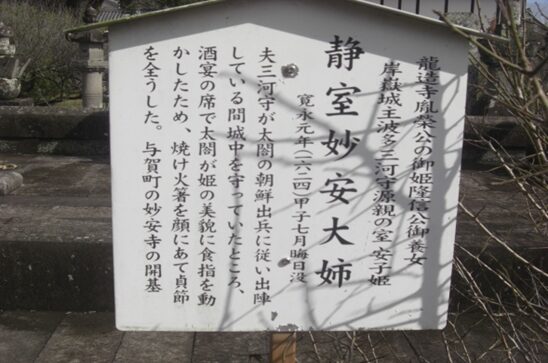 龍造寺胤榮公の御姫隆信公御養女
岸嶽城主波多三河守源親の室 安子姫
静室妙安大姉
寛永元年(一六二四)甲子七月晦日没
夫三河守が太閤の朝鮮出兵に従い出陣
している間城中を守っていたところ、
酒宴の席で太閤が姫の美貌に食指を動
かしたため、焼け火箸を顔にあて貞節
を全うした。 与賀町の妙安寺の開基